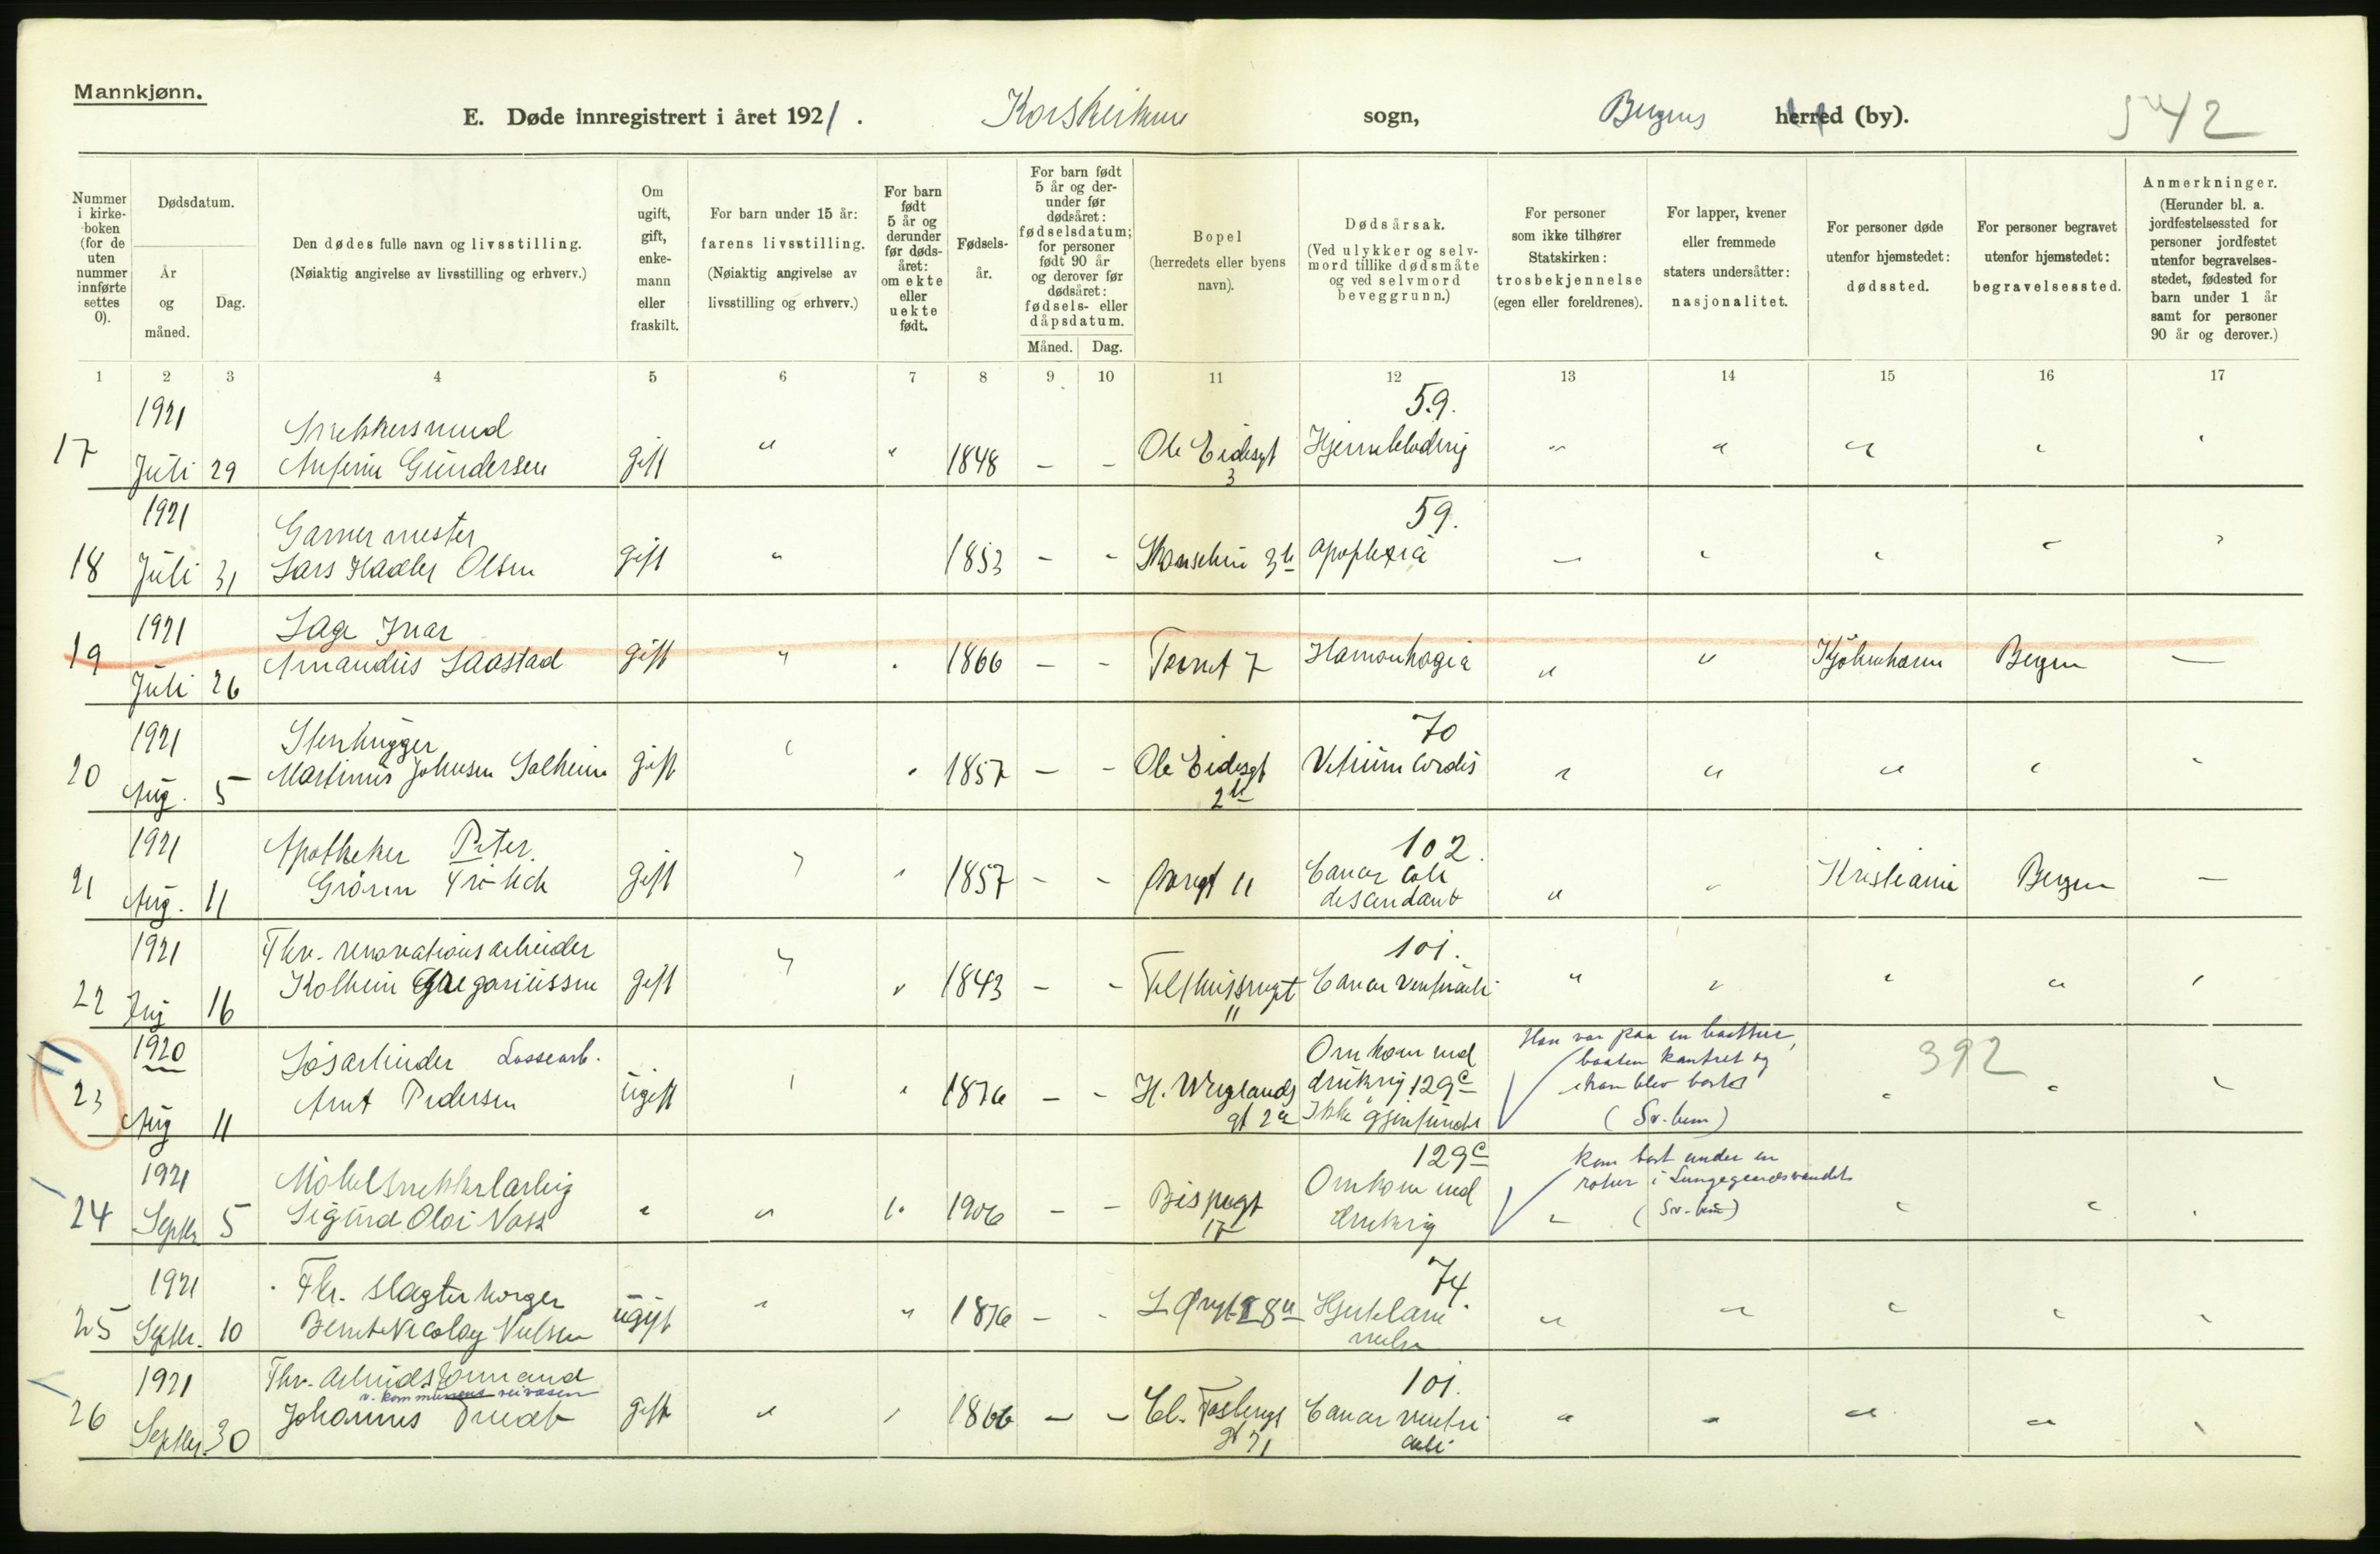 Mannkjønn.
E. Døde innregistrert i året 1921. Korskirkens sogn, Bergens herred (by). 542
Nummer i kirkeboken (for de uten nummer innførte settes 0).
Dødsdatum.
År og måned.
Dag.
Den dødes fulle navn og livsstilling.
(Nøiaktig angivelse av livsstilling og erhverv.)
Om ugift, gift, enkemann eller fraskilt.
For barn under 15 år: farens livsstilling.
(Nøiaktig angivelse av livsstilling og erhverv.)
For barn født 5 år og derunder før dødsåret: om ekte eller uekte født.
Fødselsår.
For barn født 5 år og derunder før dødsåret: fødselsdatum; for personer født 90 år og derover før dødsåret: fødsels- eller dåpsdatum.
Måned. Dag.
Bopel
(herredets eller byens navn).
Dødsårsak.
(Ved ulykker og selvmord tillike dødsmåte og ved selvmord beveggrunn.)
For personer som ikke tilhører Statskirken: trosbekjennelse (egen eller foreldrenes).
For lapper, kvener eller fremmede staters undersåtter: nasjonalitet.
For personer døde utenfor hjemstedet: dødssted.
For personer begravet utenfor hjemstedet: begravelsessted.
Anmerkninger.
(Herunder bl. a. jordfestelsessted for personer jordfestet utenfor begravelsesstedet, fødested for barn under 1 år samt for personer 90 år og derover.)
1 2 3 4 5 6 7 8 9 10 11 12 13 14 15 16 17
1921 59.
17 Juli 29 Gundersen gift " " 1848 – – Ole Eidesgt 3
1921 Garvermester 59.
18 Juli 31 Lars Olsen gift " 1853 – – 3b apoplexia –
1921 Sage Ivar
19 Juli 26 Amandus Saastad gift " " 1866 – – Tornet 7 " " Kjøbenhavn Bergen –
1921 Stenhugger 70
20 Aug. 5 Martinus Johnsen Solheim gift " " 1857 – – Ole Eidesgt 2b Vitium cordis " " " " "
1921 Apotheker Peter 102.
21 Aug. 11 Grønn Frölich gift " " 1857 – – 11 Cancer coli descendant " " Kristiania Bergen –
1921 Fhv. renovationsarbeider 101.
22 Aug 16 gift " " 1843 – – 11 Cancer ventriculi " " " " "
1920 Løsarbeider Lossearb. Omkom ved Han var paa en baattur,
23 Aug 11 Arnt Pedersen ugift " " 1876 – – H. Wergelands gt 2a drukning 129c Ikke gjenfundet baaten kantret og han blev borte (Sv. bem) 392
11
1921 129c kom bort under en
24 Septbr 5 Sigurd Olai Voss " " " 1906 – – Bispegt 17 Omkom ved drukning rotur i Lungegaardsvandet (Sv. bem)
1921 Fhv. slagter borger 74.
25 Septbr. 10 Bernt Nicolay Nielsen ugift " " 1876 – – L Øvregt 8a Hjertelammelse " " " " "
1921 Fhv. Arbeidsformand 101.
v. kommunens veivæsen
26 Septbr. 30 Johannes gift " " 1866 – – gt 21 Cancer ventriculi " " " " "